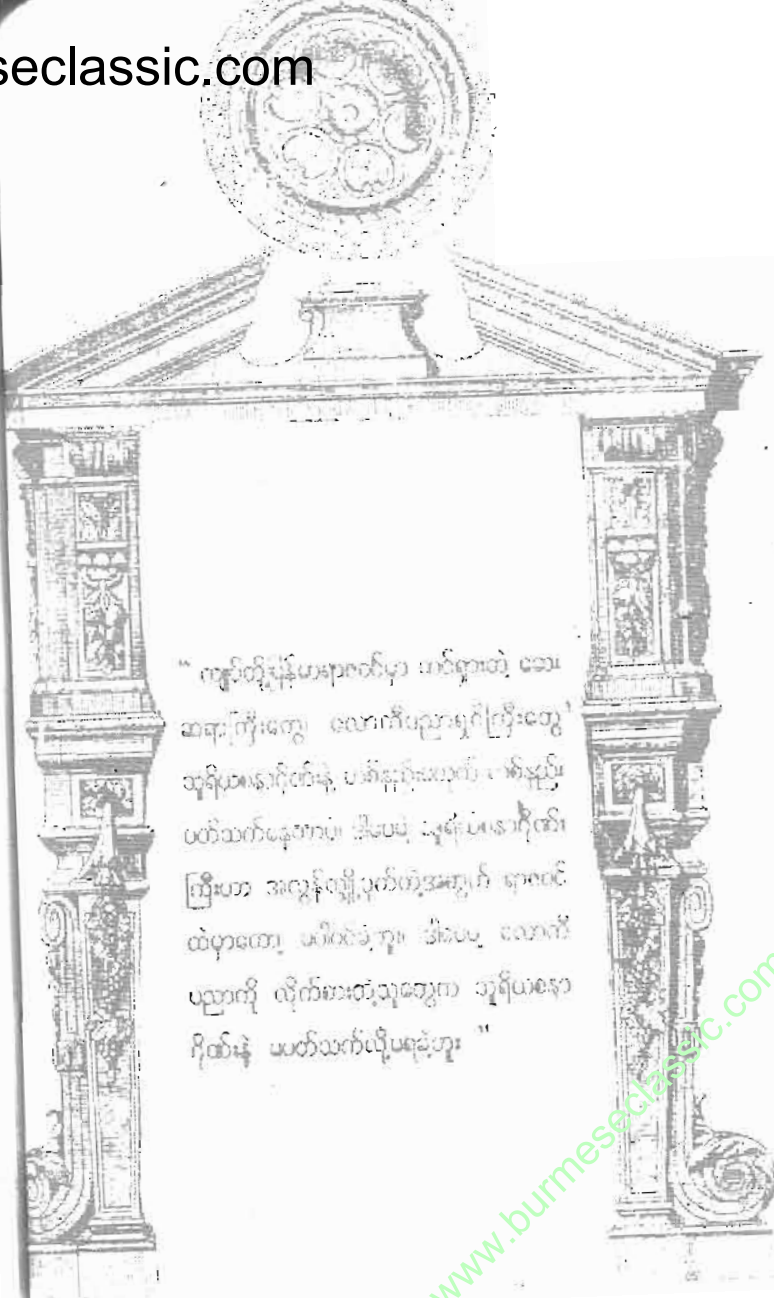 seclassic.com
“ ကျုပ်တို့မြန်မာရာဇဝင်မှာ ထင်ရှားတဲ့ ဆေး
ဆရာကြီးတွေ၊ လောကီပညာရှင်ကြီးတွေ
သူရိယစနာဂိုဏ်းနဲ့ တစ်နည်းမဟုတ် တစ်နည်း
ပတ်သက်နေတာပါ၊ ဒါပေမဲ့ သူရိယစနာဂိုဏ်း
ကြီးဟာ အလွန်လျှို့ဝှက်တဲ့အတွက် ရာဇဝင်
ထဲမှာတော့ မပါဝင်ခဲ့ဘူး၊ ဒါပေမဲ့ လောကီ
ပညာကို လိုက်စားတဲ့သူတွေက သူရိယစနာ
ဂိုဏ်းနဲ့ မပတ်သက်လို့မရခဲ့ဘူး ”
www.burmeseclassic.com